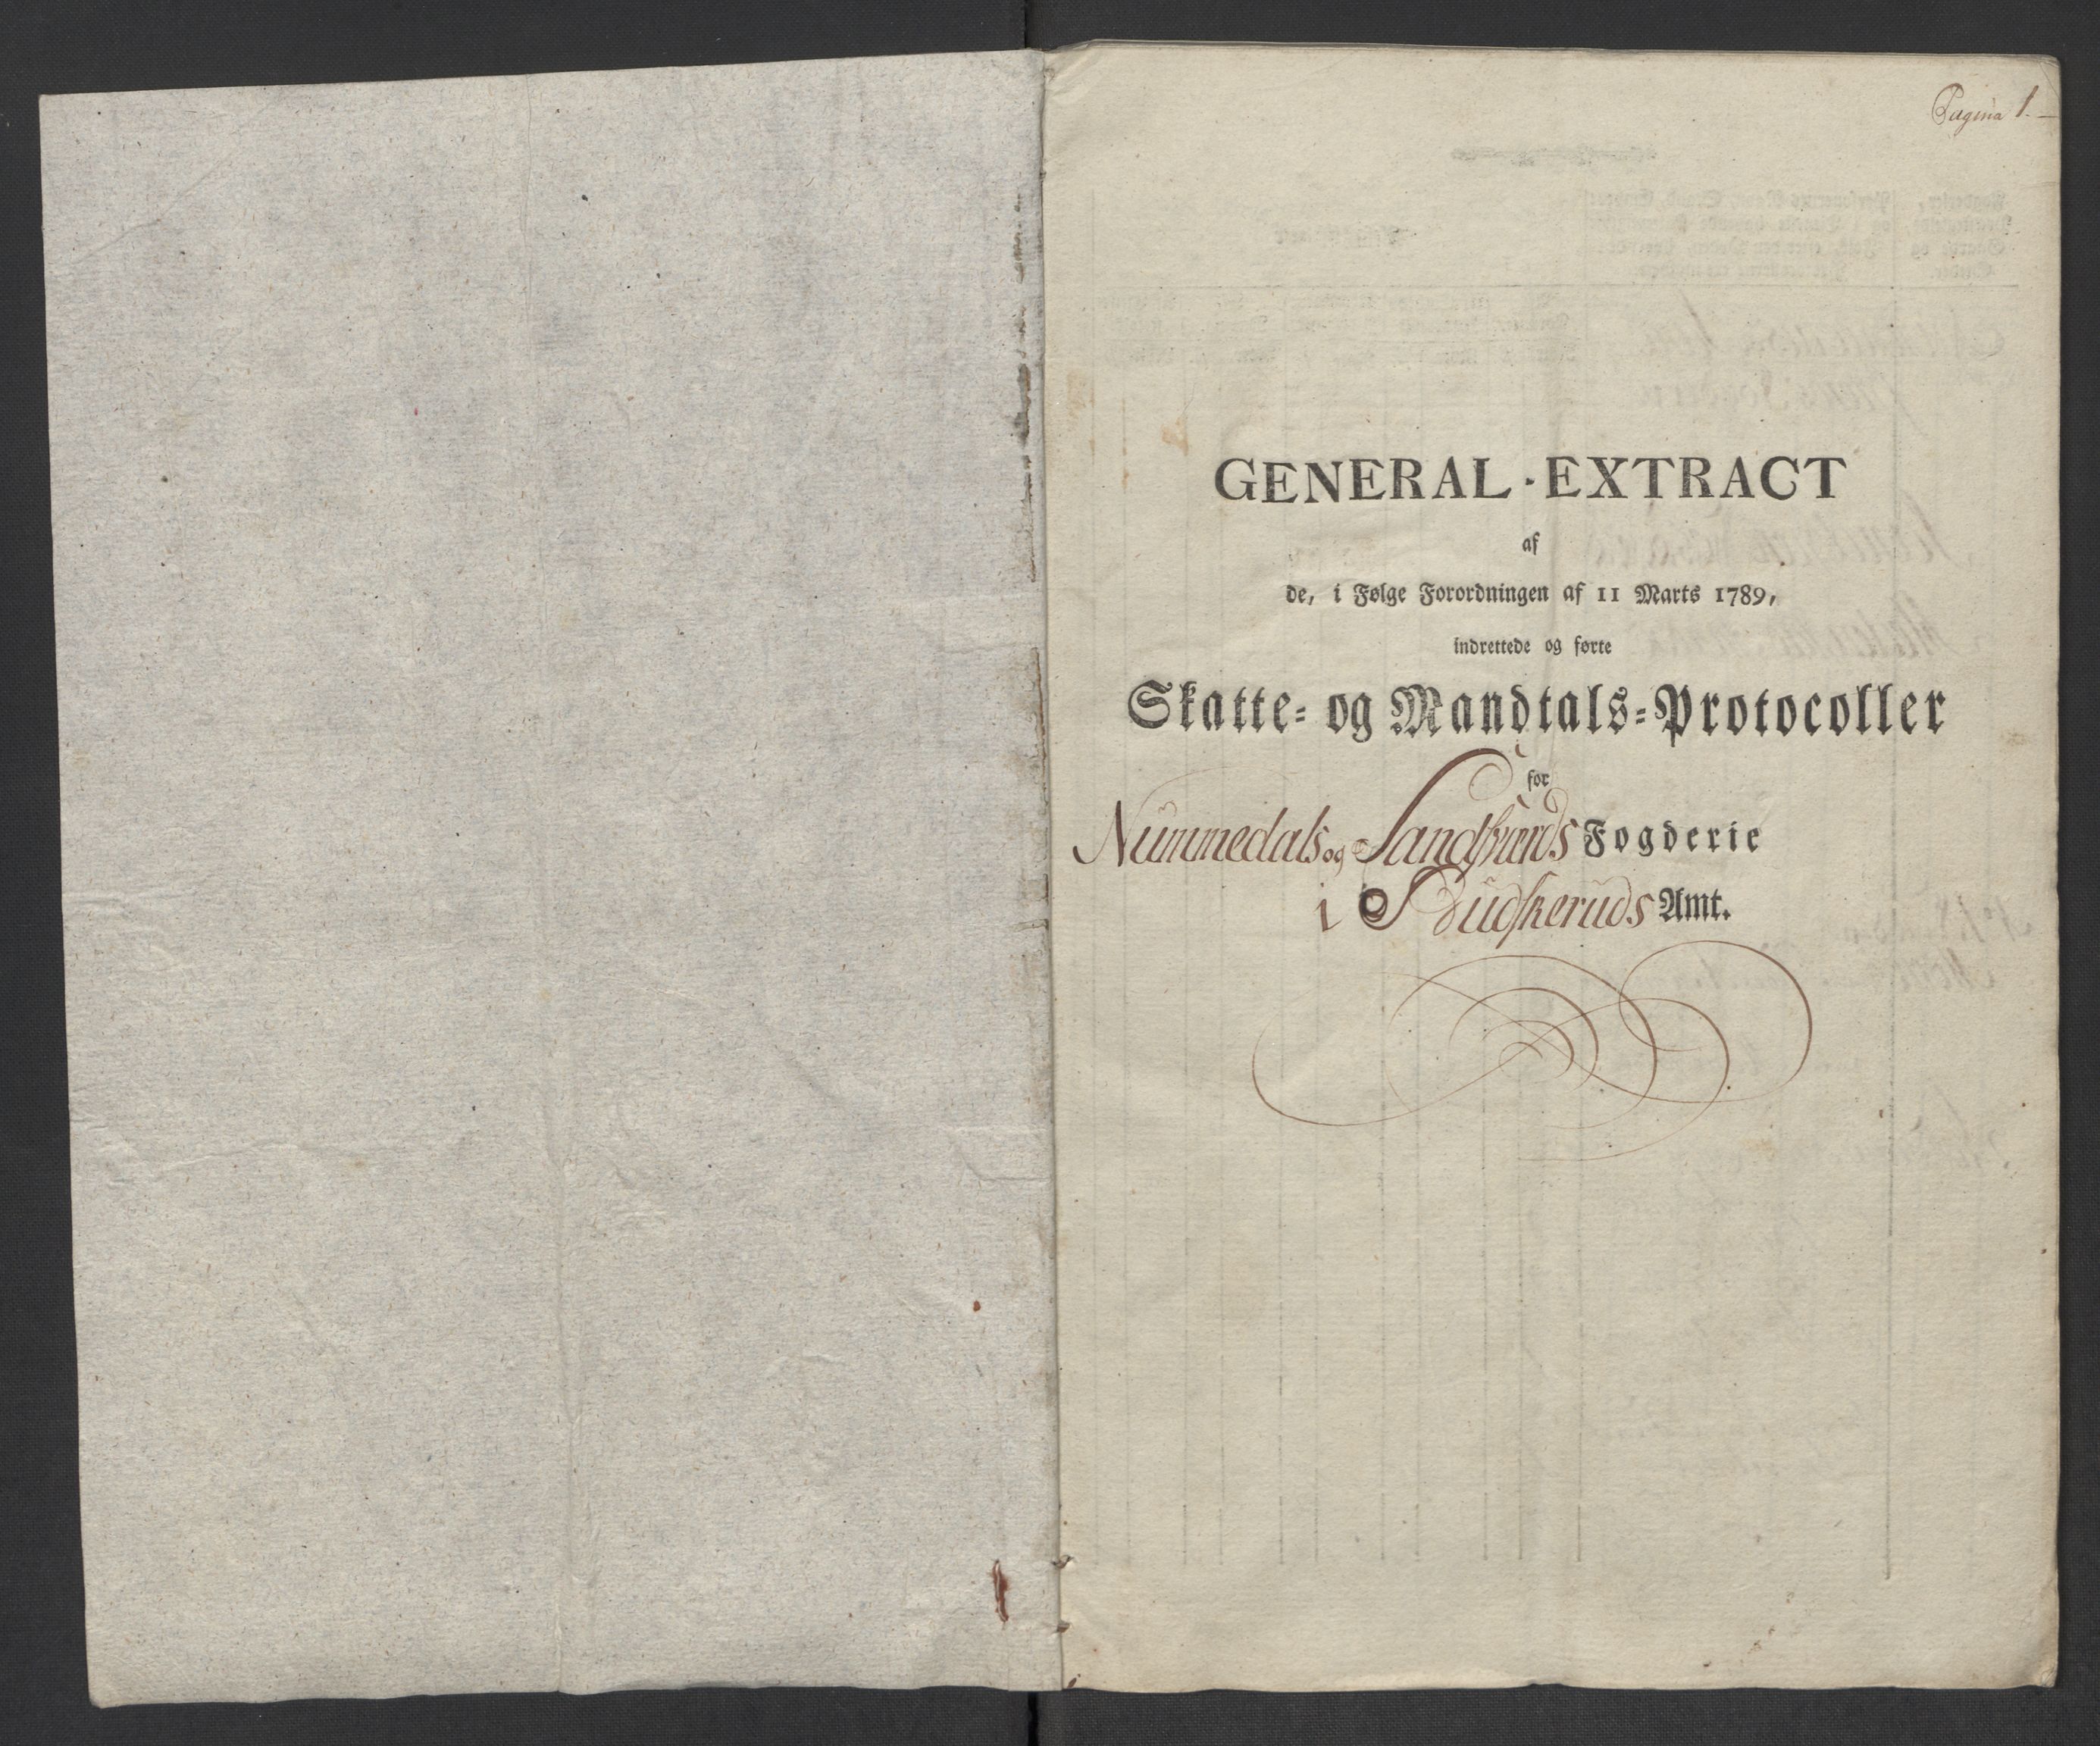 Pagina 1.
GENERAL-EXTRACT
af
de, i Følge Forordningen af 11 Marts 1789,
indrettede og førte
Skatte- og Mandtals-Protocoller
for
Nummedals og Sandsværds Fogderie
i Budskeruds Amt.